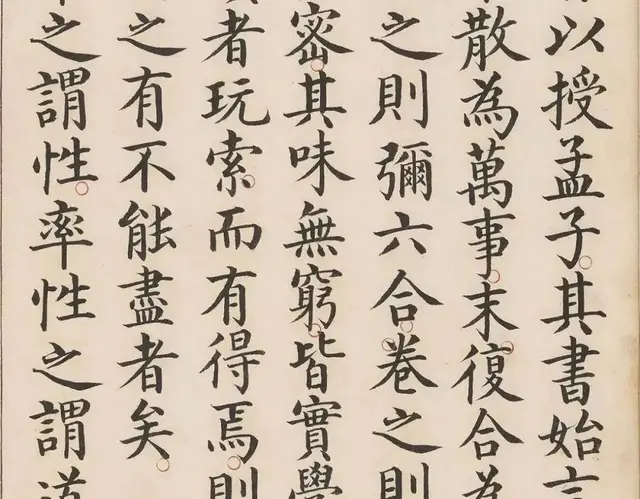 以授孟子其書始言
散為萬事末復合為
之則彌六合卷之則
密其味無窮皆實學
者玩索而有得焉則
之有不能盡者矣
之謂性率性之謂道